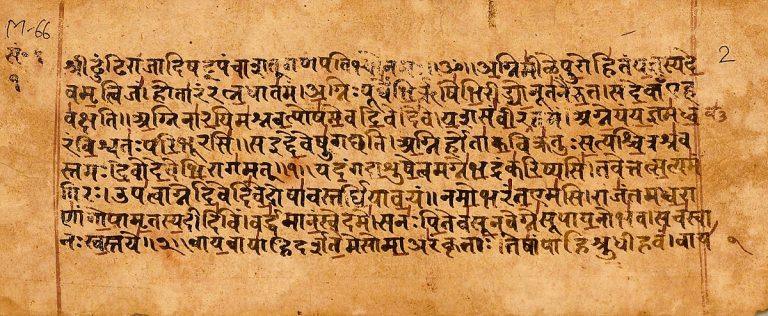 M-66
सं॰ १
१
2
श्रीढुंढिराजादिषट्पंचाशत् गणपतिभ्यो नमः॥ॐ॥अग्निमीळेपुरोहितंयज्ञस्यदे
वमृत्विजं।होतारंरत्नधातमं।अग्निःपूर्वेभिर्ऋषिभिरीड्योनूतनैरुत।सदेवाँएह
वक्षति॥अग्निनारयिमश्नवत्पोषमेवदिवेदिवे।यशसंवीरवत्तमं।अग्नेयंयज्ञमध्व
रंविश्वतःपरिभूरसि।सइद्देवेषुगच्छति।अग्निर्होताकविक्रतुःसत्यश्चित्रश्रव
स्तमः।देवोदेवेभिरागमत्॥१॥यदंगदाशुषेत्वमग्नेभद्रंकरिष्यसि।तवेत्तत्सत्यमं
गिरः।उपत्वाग्नेदिवेदिवेदोषावस्तर्धियावयं॥नमोभरंतएमसि।राजंतमध्वरा
णांगोपामृतस्यदीदिविं।वर्द्धमानंस्वेदमे।सनःपितेवसूनवेग्नेसूपायनोभव।सचस्वा
नःस्वस्तये॥२॥वायवायाहिदर्शतेमेसोमाअरंकृताः।तेषांपाहिश्रुधीहवं।वाय